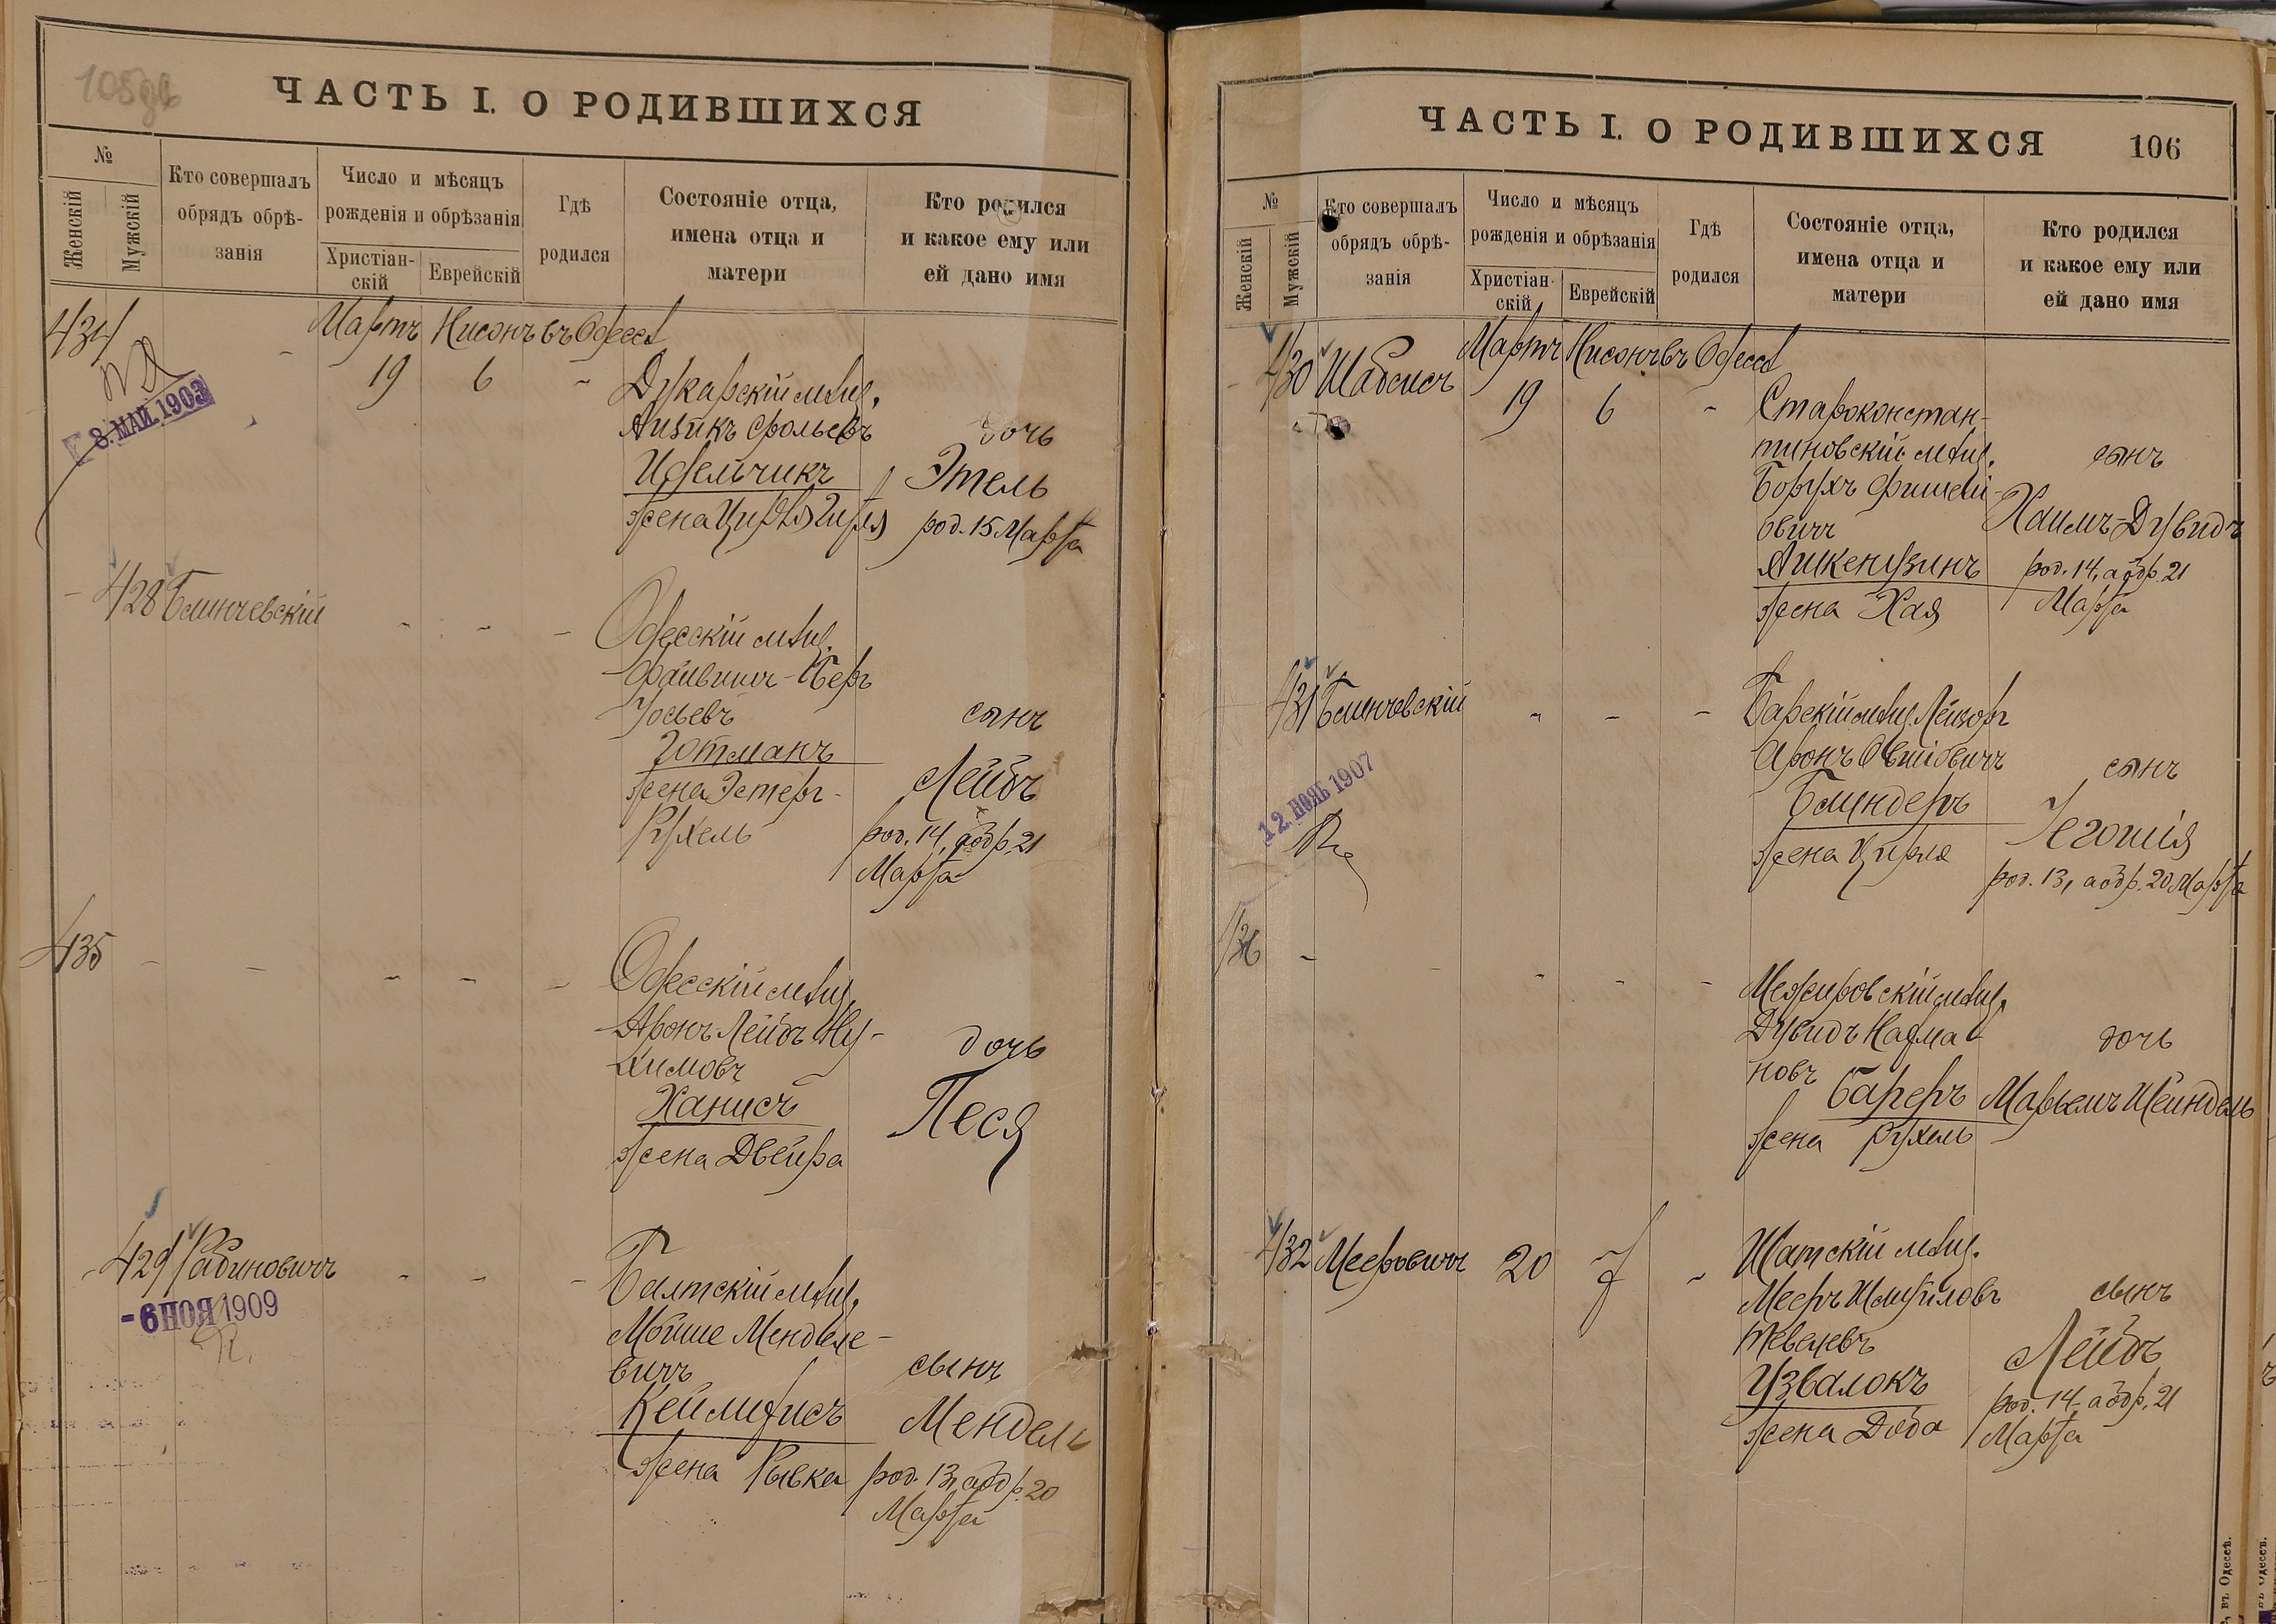 ЧАСТЬ I. О РОДИВШИХСЯ
№
Женскій
Мужскій
Кто совершалъ
обрядъ обрѣ-
занія
Число и мѣсяцъ
рожденія и обрѣзанія
Христіан-
скій
Еврейскій
Гдѣ
родился
Состояніе отца,
имена отца и
матери
Кто родился
и какое ему или
ей дано имя
434
Мартъ Нисонъ въ Одессѣ
19 6
мѣщ.
Айзикъ Фольевъ
жена
дочь
Этель
род. 15 Марта
8. МАЙ. 1903
428 Блинчевскій
Одесскій мѣщ.
Файвишъ-Беръ
Іосьевъ
Готманъ
жена Эстеръ-
Рухель
сынъ
Лейбъ
род. 14, а обр. 21
Марта
435
Одесскій мѣщ.
Аронъ-Лейбъ Ну-
химовъ
Ханисъ
жена Двейра
дочь
Песя
429 Рабиновичъ
-6 НОЯ 1909
Балтскій мѣщ.
Мойше Менделе-
вичъ
жена Рывка
сынъ
Мендель
род. 13, а обр. 20
Марта
ЧАСТЬ I. О РОДИВШИХСЯ
106
№
Женскій
Мужскій
Кто совершалъ
обрядъ обрѣ-
занія
Число и мѣсяцъ
рожденія и обрѣзанія
Христіан-
скій
Еврейскій
Гдѣ
родился
Состояніе отца,
имена отца и
матери
Кто родился
и какое ему или
ей дано имя
430 Шабсисъ
Мартъ Нисонъ въ Одессѣ
19 6
Староконстан-
тиновскій мѣщ.
Борухъ Фишеле-
вичъ
Ашкенузинъ
жена Хая
сынъ
Хаимъ-Дувидъ
род. 14, а обр. 21
Марта
431 Блинчевскій
12. НОЯБ 1907
Барскій мѣщ. Лейзоръ
Аронъ
Блиндеръ
жена Цирля
сынъ
Іегошія
род. 13, а обр. 20 Марта
436
Межировскій мѣщ.
Дувидъ Нахма-
новъ
жена Рухель
дочь
Марьемъ Шейндель
432 Мееровичъ 20 7
мѣщ.
Мееръ Шмуйловъ
Узвалокъ
жена
сынъ
Лейбъ
род. 14 а обр. 21
Марта
въ Одессѣ.